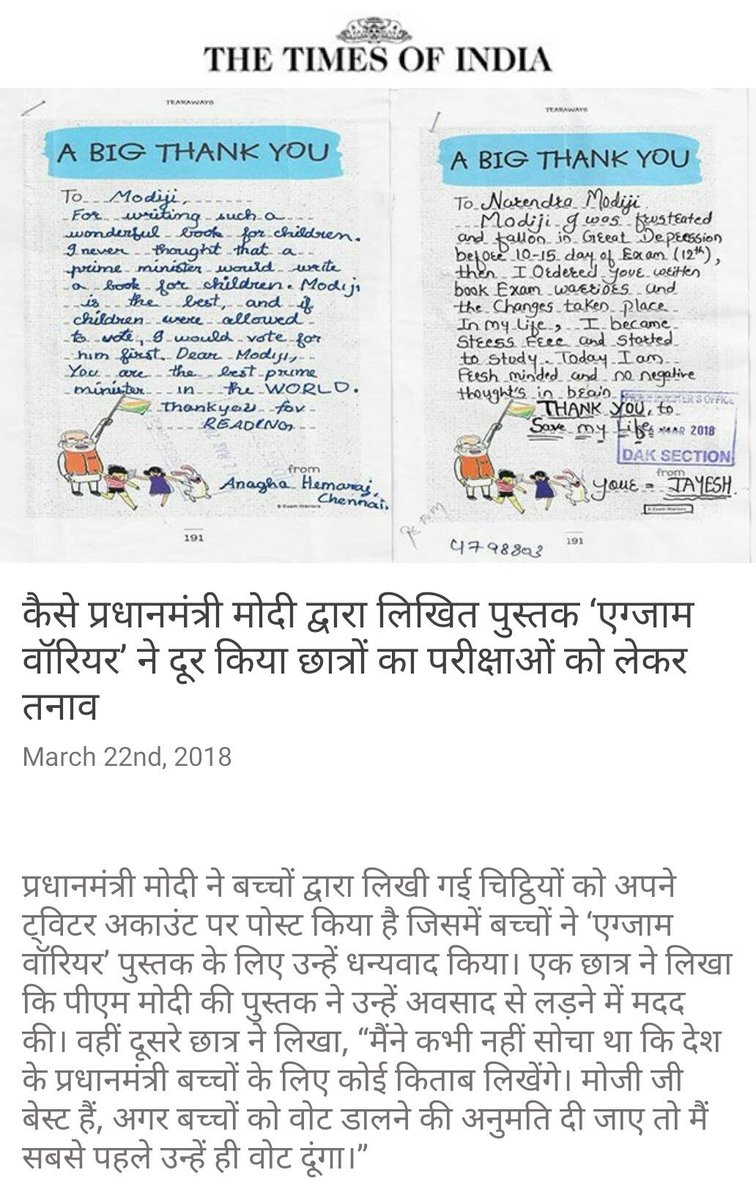 THE TIMES OF INDIA
TEARAWAYS
A BIG THANK YOU
To Modiji,
For writing such a
wonderful book for children.
I never thought that a
prime minister would write
a book for children. Modiji
is the best, and if
children were allowed
to vote, I would vote for
him first. Dear Modiji,
You are the best prime
minister in the WORLD.
Thankyou for
READING
from
Anagha Hemaraj,
Chennai.
© Exam Warriors
191
TEARAWAYS
A BIG THANK YOU
To Narendra Modiji
Modiji I was frusteated
and fallon in Great Depression
before 10-15 day of Exam (12th),
then I Ordered youe weitten
book Exam warriors and
the Changes taken place
In my Life, I became
Steess Feee and Started
to study. Today I am
Feesh minded and no negative
thought's in beain.
THANK YOU, to
Save my Life
MAR 2018
DAK SECTION
from
youe = JAYESH.
© Exam Warriors
191
4798803
कैसे प्रधानमंत्री मोदी द्वारा लिखित पुस्तक ‘एग्जाम
वॉरियर’ ने दूर किया छात्रों का परीक्षाओं को लेकर
तनाव
March 22nd, 2018
प्रधानमंत्री मोदी ने बच्चों द्वारा लिखी गई चिट्ठियों को अपने
ट्विटर अकाउंट पर पोस्ट किया है जिसमें बच्चों ने ‘एग्जाम
वॉरियर’ पुस्तक के लिए उन्हें धन्यवाद किया। एक छात्र ने लिखा
कि पीएम मोदी की पुस्तक ने उन्हें अवसाद से लड़ने में मदद
की। वहीं दूसरे छात्र ने लिखा, “मैंने कभी नहीं सोचा था कि देश
के प्रधानमंत्री बच्चों के लिए कोई किताब लिखेंगे। मोजी जी
बेस्ट हैं, अगर बच्चों को वोट डालने की अनुमति दी जाए तो मैं
सबसे पहले उन्हें ही वोट दूंगा।”